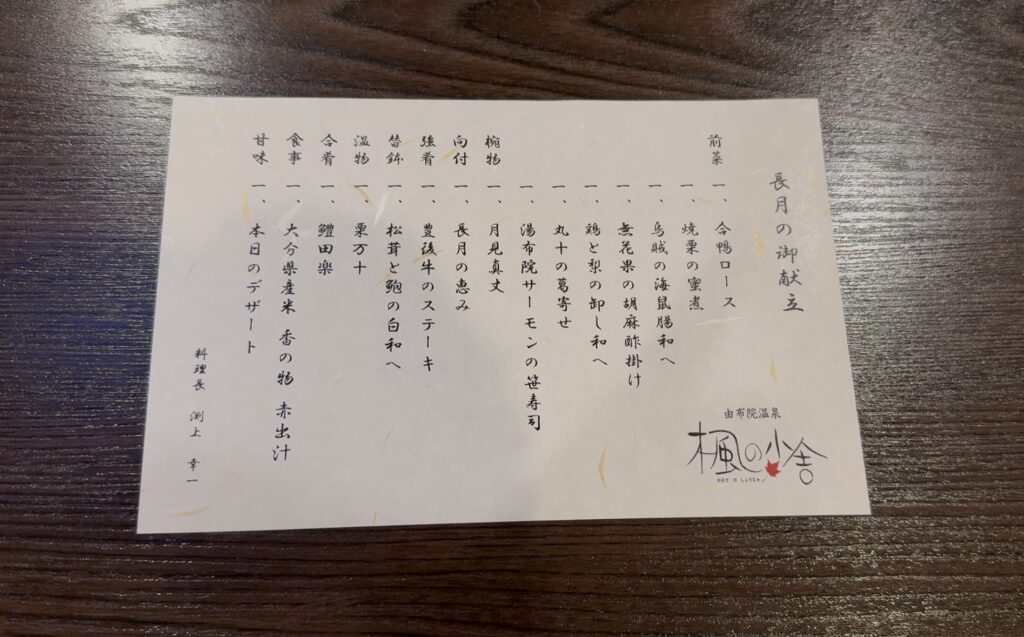 長月の御献立
前菜 一、合鴨ロース
一、焼栗の蜜煮
一、烏賊の海鼠腸和へ
一、無花果の胡麻酢掛け
一、鶏と梨の卸し和へ
一、丸十の葛寄せ
一、湯布院サーモンの笹寿司
椀物 一、月見真丈
向付 一、長月の恵み
強肴 一、豊後牛のステーキ
替鉢 一、松茸と鮑の白和へ
温物 一、栗万十
合肴 一、鱧田楽
食事 一、大分県産米 香の物 赤出汁
甘味 一、本日のデザート
料理長 渕上 幸一
由布院温泉
楓の小舎